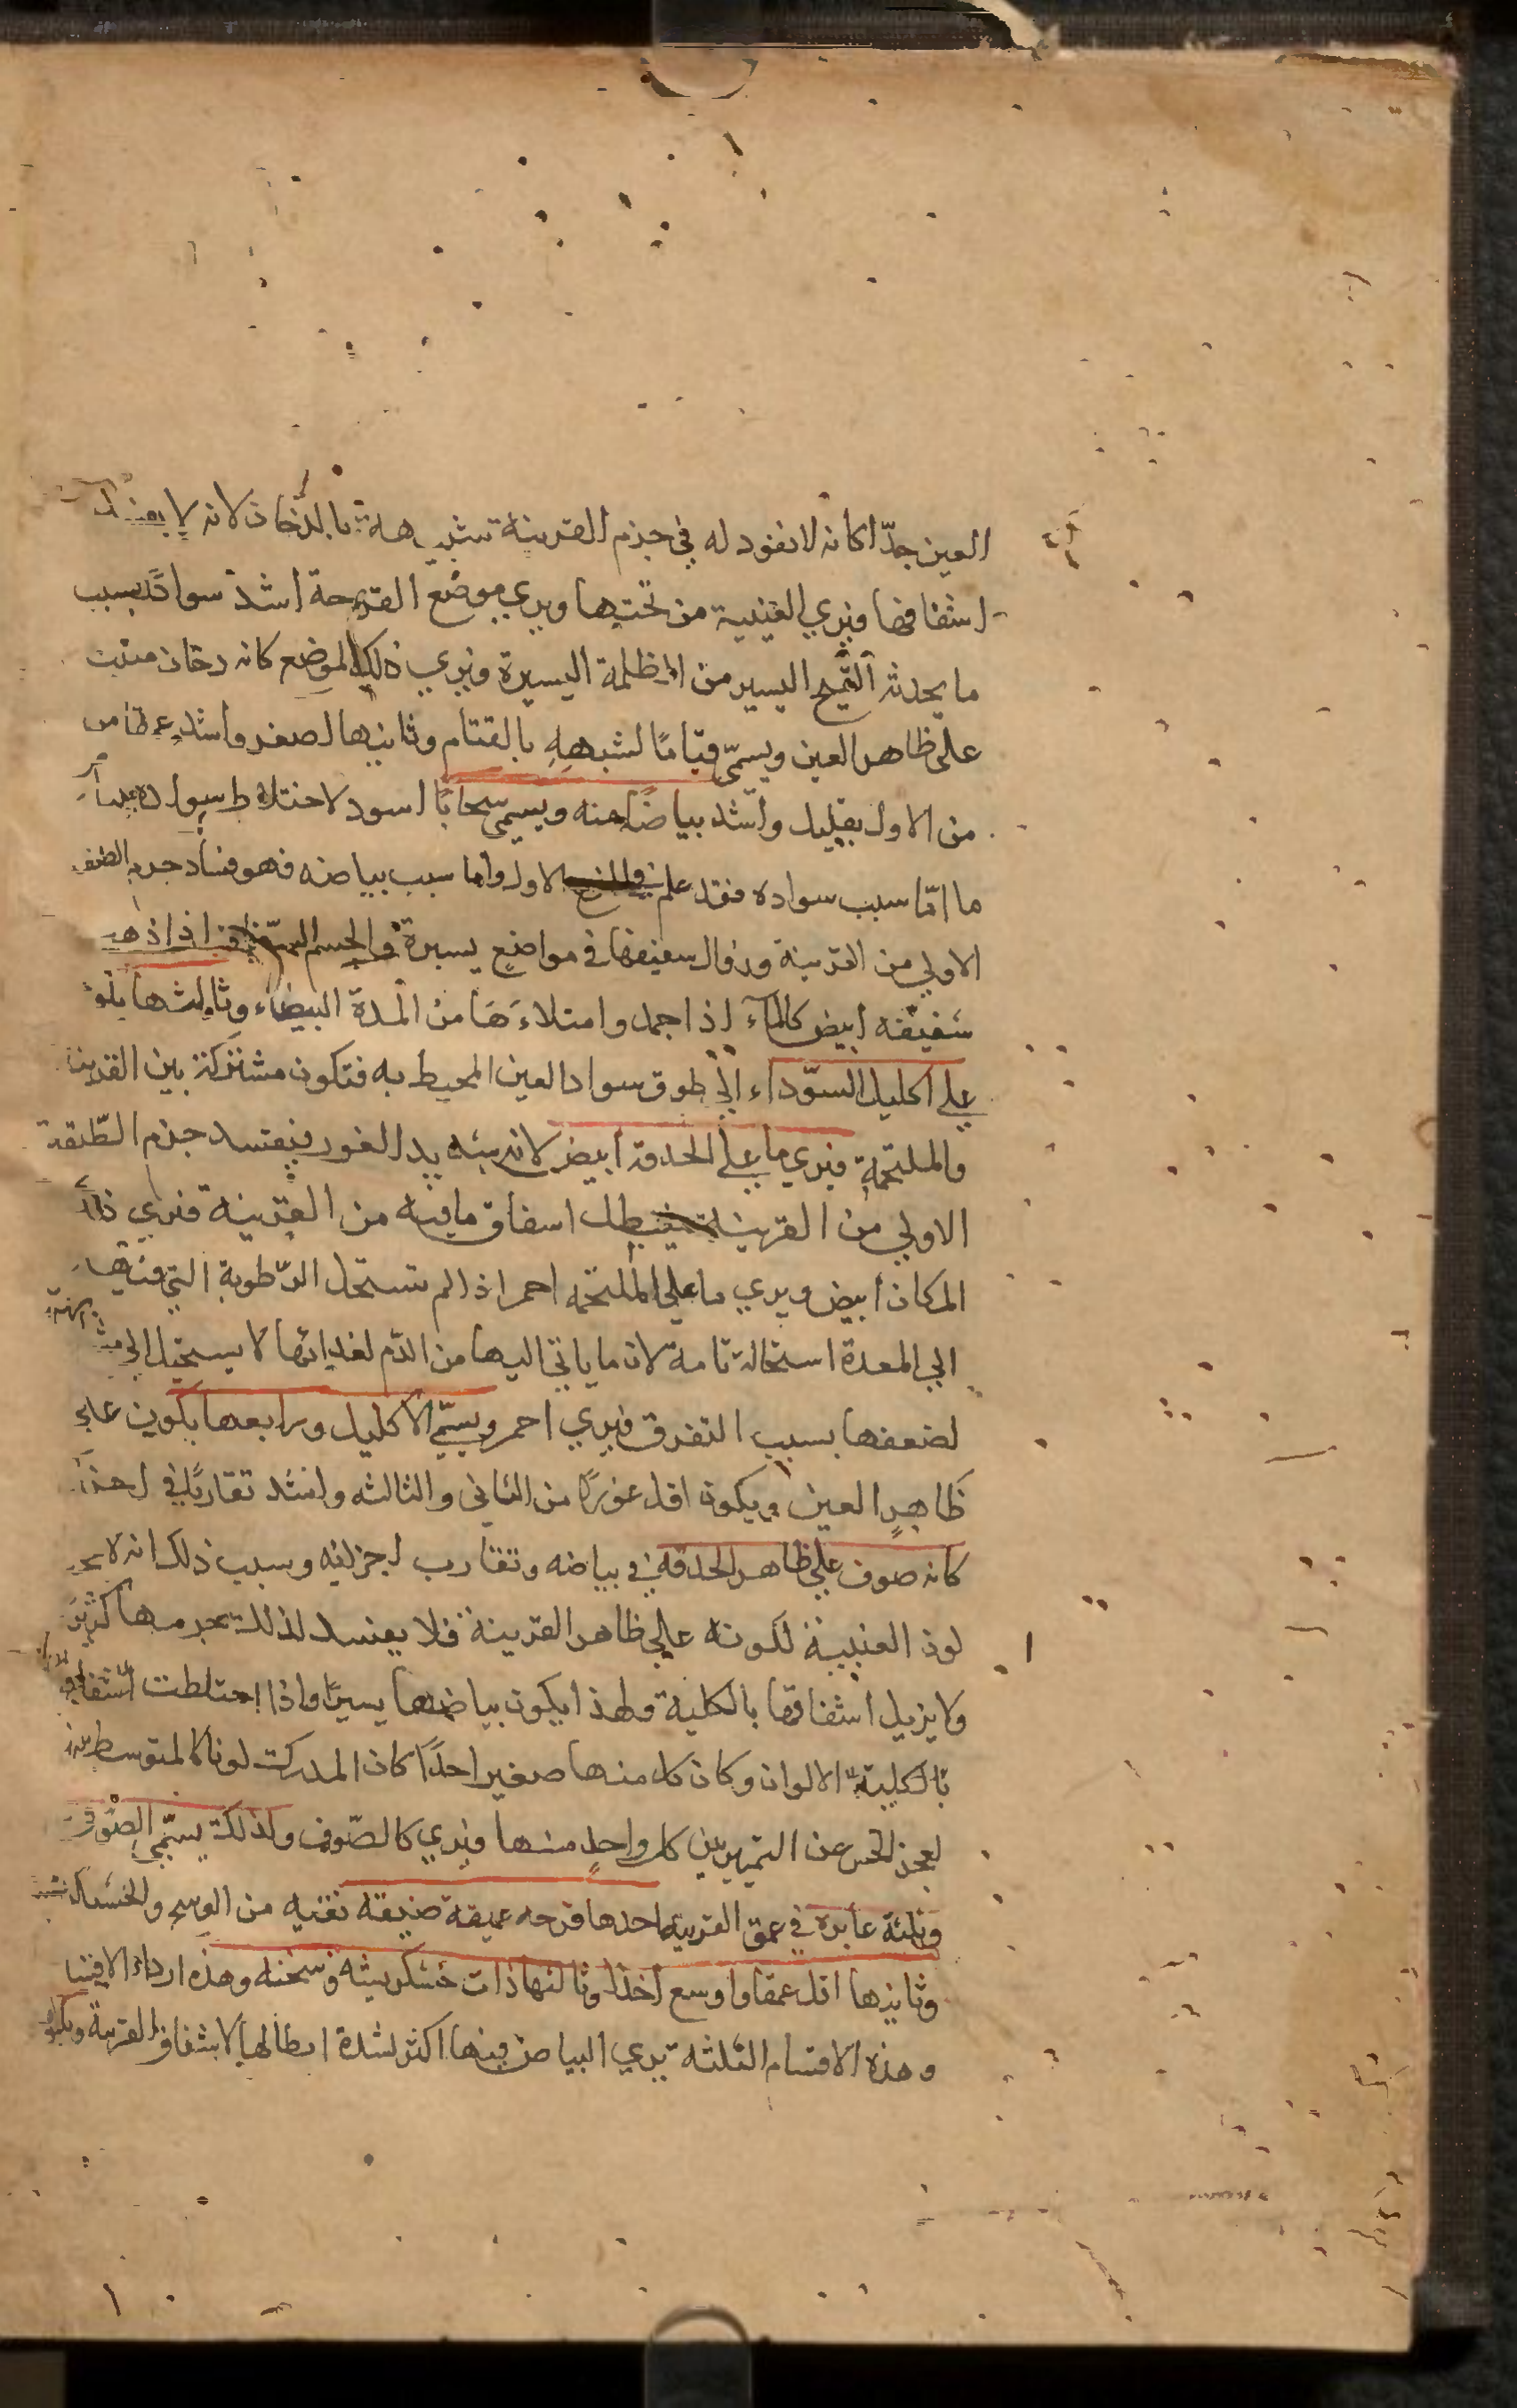 العين جدّا كانه لا نفود له في جرم القرنية شبيهة بالدخان لانه لا يفسد
اشفافها فيري العنبية من تحتها ويري موضع القرحة اشد سوادًا بسبب
ما يحدثه القيح اليسير من الظلمة اليسيرة ويري ذلك الموضع كانه دخان منبت
على ظاهر العين ويسمّى قتامًا لشبهه بالقتام وثانيها اصغر واشد عمقا من
من الاول بقليل واشد بياضًا منه ويسمى سحابًا اسود لاختلاط سواده
ما امّا سبب سواده فقد علم في الاول واما سبب بياضه فهو فساد جرم
الاولي من القرنية وزوال سفيفها في مواضع يسيرة والجسم اذا ذهب
شفيفه ابيض كالماء اذا جمد وامتلاءها من المدة البيضاء وثالثها يكون
علي اكليل السوّداء اي طوق سواد العين المحيط به فتكون مشتركة بين القرنية
والملتحمة فيري ما علي الحدقة ابيض لانه شديد الغور فيفسد جرم الطّبقة
الاولي من القرنية فيبطل اسفاق ما فيه من القرنية فيري ذلك
المكان ابيض ويري ما علي الملتحمه احمر اذا لم تستحل الرّطوبة التي فيها
الي المعدة استحالة تامة لان ما ياتي اليها من الدّم لغدائها لا يستحيل الي
لضعفها بسبب التفرق فيري احمر ويسمّي الاكليل ورابعها يكون علي
ظاهر العين ويكون اقل غورًا من الثاني والثالثه واشد تقاربًا في
كانه صوف علي ظاهر الحدقة في بياضه وتقارب اجزائه وسبب ذلك انه لا
لون العنبية لكونه علي ظاهر القرنية فلا يفسد لذلك جرمها كثيرً
ولا يزيل اشفاقها بالكلية ولهذا يكون بياضها يسيرًا واذا اختلطت
بالكلية الالوان وكان كل منها صغيرا جدًا كان المدرك لونا كالمتوسط
لعجز الحس عن التمييز بين كل واحدٍ منها فيري كالصّوف ولذلك يسمّي الصّوفي
وثلثة غايره في عمق القرنية احدها قرحه عميقه ضيقه نقيه من الوسخ والخشكريشة
وثانيها اقل عمقا واوسع اخذا وثالثها ذات خشكريشه وسخنه وهذه ارداء الاقسا
وهذه الاقسام الثلثه يري البياض فيها اكثر لشدة ابطالها لاشفاف القرنية ويكون